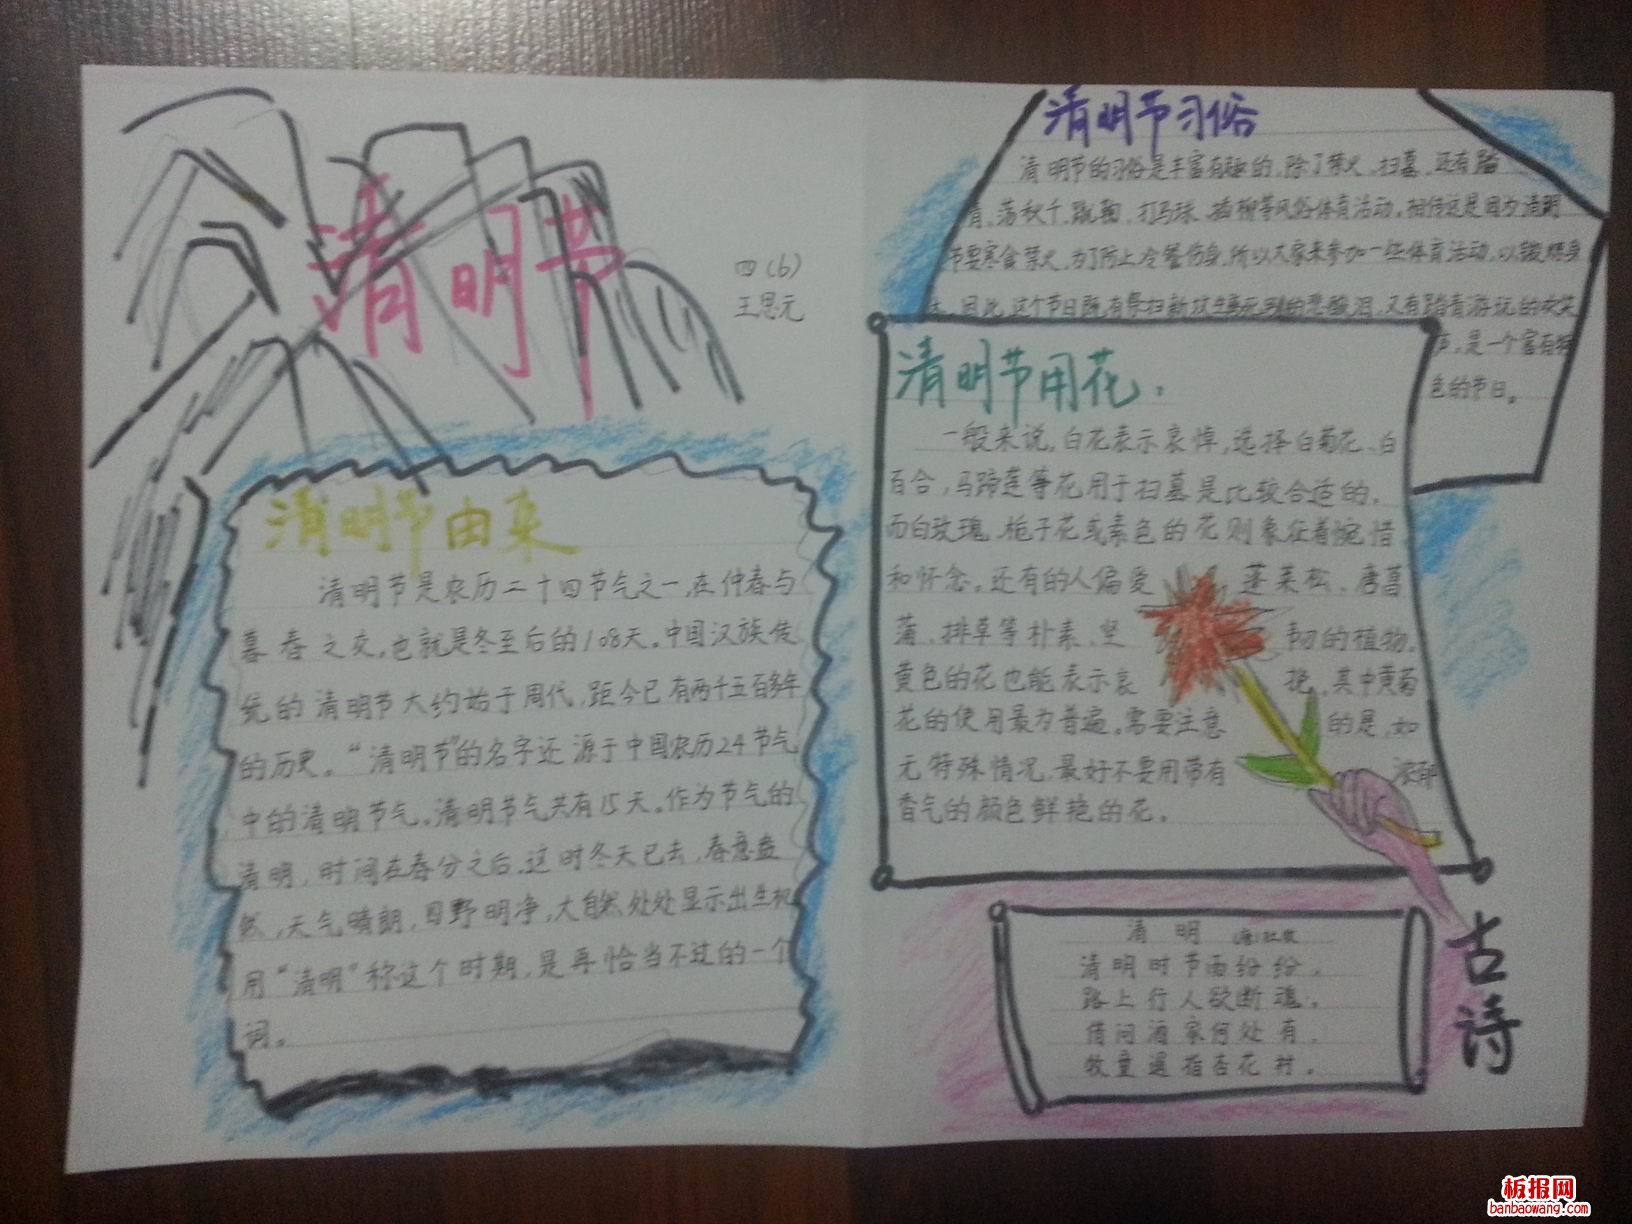 清明节
四(6)
王思元
清明节由来
清明节是农历二十四节气之一,在仲春与
暮春之交,也就是冬至后的108天。中国汉族传
统的清明节大约始于周代,距今已有两千五百多年
的历史。“清明节”的名字还源于中国农历24节气
中的清明节气。清明节气共有15天。作为节气的
清明,时间在春分之后,这时冬天已去,春意盎
然,天气晴朗,田野明净,大自然处处显示出生机
用“清明”称这个时期,是再恰当不过的一个
词。
清明节习俗
清明节的习俗是丰富有趣的,除了禁火、扫墓,还有踏
青、荡秋千、蹴鞠、打马球、插柳等风俗体育活动。相传这是因为清明
节要寒食禁火,为了防止冷餐伤身,所以大家来参加一些体育活动,以锻炼身
体。因此,这个节日既有祭扫新坟生离死别的悲酸泪,又有踏青游玩的欢笑
声,是一个富有特
色的节日。
清明节用花:
一般来说,白花表示哀悼,选择白菊花、白
百合,马蹄莲等花用于扫墓是比较合适的,
而白玫瑰、栀子花或素色的花则象征着惋惜
和怀念。还有的人偏爱蓬莱松、唐菖
蒲、排草等朴素、坚韧的植物。
黄色的花也能表示哀挽,其中黄菊
花的使用最为普遍。需要注意的是,如
无特殊情况,最好不要用带有浓郁
香气的颜色鲜艳的花。
古诗
清明 (唐)杜牧
清明时节雨纷纷,
路上行人欲断魂。
借问酒家何处有,
牧童遥指杏花村。
板报网
banbaowang.com